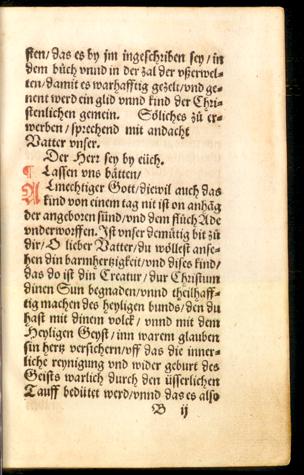 sten/das es by jm ingeschriben sey/in
dem bůch vnnd in der zal der vßerwel-
ten/damit es warhafftig gezelt/vnd ge-
nent werd ein glid vnnd kind der Chri-
stenlichen gemein. Söliches zů er-
werben/sprechend mit andacht
Vatter vnser.
Der Herr sey by eüch.
¶ Lassen vns bätten/
ALmechtiger Gott/diewil auch das
kind von einem tag nit ist on anhäg
der angeboren sünd/vnd dem flůch Ade
vnderworffen. Ist vnser demütig bit zů
dir/O lieber Vatter/du wöllest anse-
hen din barmhertzigkeit/vnd dises kind/
das do ist din Creatur/dur Christum
dinen Sun begnaden/vnnd theilhaff-
tig machen des heyligen bunds/den du
hast mit dinem volck/vnnd mit dem
Heyligen Geyst/inn warem glauben
sin hertz versichern/vff das die inner-
liche reynigung vnd wider geburt des
Geists warlich durch den üsserlichen
Tauff bedütet werd/vnnd das es also
B ij